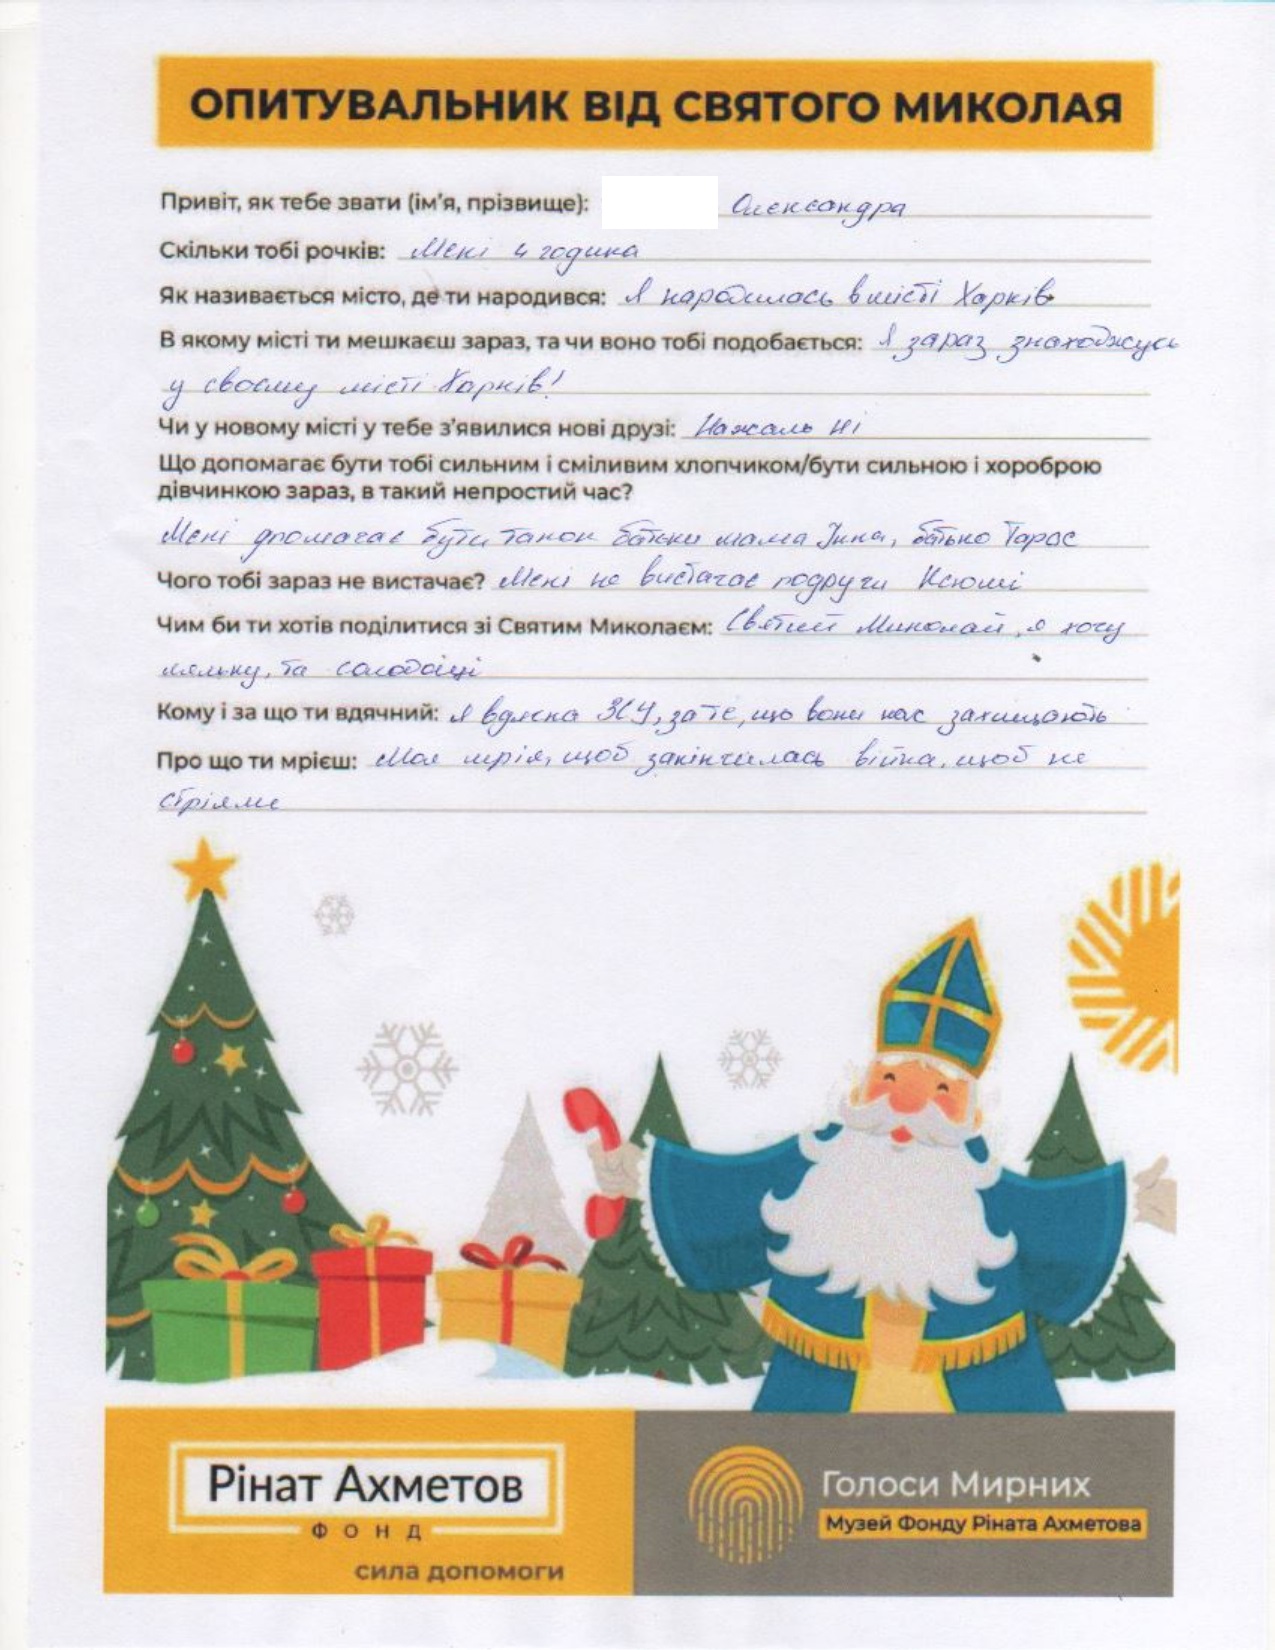 ОПИТУВАЛЬНИК ВІД СВЯТОГО МИКОЛАЯ
Привіт, як тебе звати (ім'я, прізвище): Олександра
Скільки тобі рочків: Мені 4 година
Як називається місто, де ти народився: Я народилась в місті Харків
В якому місті ти мешкаєш зараз, та чи воно тобі подобається: Я зараз знаходжусь
у своєму місті Харків!
Чи у новому місті у тебе з'явилися нові друзі: Нажаль ні
Що допомагає бути тобі сильним і сміливим хлопчиком/бути сильною і хороброю
дівчинкою зараз, в такий непростий час?
Мені дпомагає бути такою батьки мама Інна, батько Тарас
Чого тобі зараз не вистачає? Мені не вистачає подруги Ксюші
Чим би ти хотів поділитися зі Святим Миколаєм: Святий Миколай, я хочу
ляльку, та солодощі
Кому і за що ти вдячний: Я вдячна ЗСУ, за те, що вони нас захищають
Про що ти мрієш: Моя мрія, щоб закінчилась війна, щоб не
стріляли
Рінат Ахметов
ФОНД
сила допомоги
Голоси Мирних
Музей Фонду Ріната Ахметова